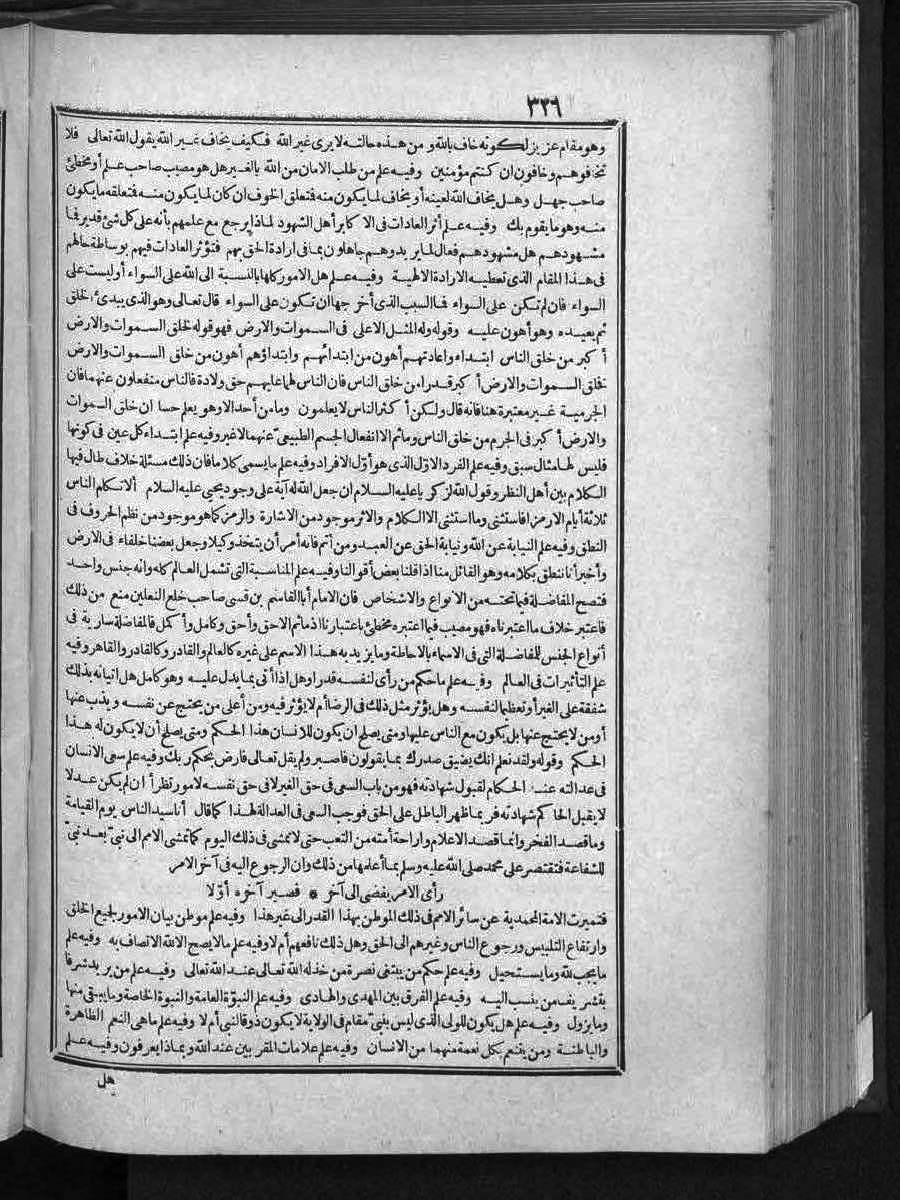 ٣٢٦
وهو مقام عزيز لكونه خاف بالله ومن هذه حالته لا يرى غير الله فكيف يخاف غير الله يقول الله تعالى فلا
تخافوهم وخافون ان كنتم مؤمنين وفيه علم من طلب الامان من الله بالغير هل هو مصيب صاحب علم أو مخطئ
صاحب جهل وهل يخاف الله لعينه أو يخاف لما يكون منه فتعلق الخوف ان كان لما يكون منه فتعلقه ما يكون
منه وهو ما يقوم بك وفيه علم أثر العادات فى الا كابر أهل الشهود لماذا يرجع مع علمهم بأنه على كل شئ قدير فيما
مشهودهم هل مشهودهم فعال لما يريد وهم جاهلون بما فى ارادة الحق بهم فتؤثر العادات فيهم بوساطة حالهم
فى هذا المقام الذى تعطيه الارادة الالهية وفيه علم هل الامور كلها بالنسبة الى الله على السواء أو ليست على
السواء فان لم تكن على السواء فما السبب الذى أخرجها ان تكون على السواء قال تعالى وهو الذى يبدئ الخلق
ثم يعيده وهو أهون عليه وقوله وله المثل الاعلى فى السموات والارض فهو قوله لخلق السموات والارض
أكبر من خلق الناس ابتداء واعادتهم أهون من ابتدائهم وابتداؤهم أهون من خلق السموات والارض
نخلق السموات والارض أكبر قدرا من خلق الناس فان الناس لهما عليهم حق ولادة فالناس منفعلون عنهما فان
الجرمية غير معتبرة هنا فانه قال ولكن أكثر الناس لا يعلمون وما من أحد الا وهو يعلم حسا ان خلق السموات
والارض أكبر فى الجرم من خلق الناس وما ثم الا انفعال الجسم الطبيعى عنهما لا غير وفيه علم ابتداء كل عين فى كونها
فليس لها مثال سبق وفيه علم الفرد الاول الذى هو أول الافراد وفيه علم ما يسمى كلاما فان ذلك مسئلة خلاف طال فيها
الكلام بين أهل النظر وقول الله لزكريا عليه السلام ان جعل الله له آية على وجود يحيى عليه السلام ألا تكلم الناس
ثلاثة أيام الا رمزا فاستثنى وما استثنى الا الكلام والاثر موجود من الاشارة والرمز كما هو موجود من نظم الحروف فى
النطق وفيه علم النيابة عن الله ونيابة الحق عن العبد ومن أتم فانه أمر أن يتخذ وكيلا وجعل بعضنا خلفاء فى الارض
وأخبر أنا ننطق بكلامه وهو القائل منا اذا قلنا بعض أقوالنا وفيه علم المناسبة التى تشمل العالم كله وانه جنس واحد
فتصح المفاضلة فيما تحته من الانواع والاشخاص فان الامام أبا القاسم بن قسى صاحب خلع النعلين منع من ذلك
فاعتبر خلاف ما اعتبرناه فهو مصيب فيما اعتبره مخطئ باعتبارنا اذ ما ثم الا حق وأحق وكامل وأكمل فالمفاضلة سارية فى
أنواع الجنس للمفاضلة التى فى الاسماء بالاحاطة وما يزيد به هذا الاسم على غيره كالعالم والقادر وكالقادر والقاهر وفيه
علم التأثيرات فى العالم وفيه علم ما حكم من رأى لنفسه قدرا وهل اذا أتى بما يدل عليه وهو كامل هل اتيانه بذلك
شفقة على الغير أو تعظيما لنفسه وهل يؤثر مثل ذلك فى الرضا أم لا يؤثر فيه ومن أعلى من يحتج عن نفسه ويذب عنها
أو من لا يحتج عنها بل يكون مع الناس عليها ومتى يصلح ان يكون للانسان هذا الحكم ومتى يصلح أن لا يكون له هذا
الحكم وقوله ولقد نعلم انك يضيق صدرك بما يقولون فاصبر ولم يقل تعالى فارض بحكم ربك وفيه علم سعى الانسان
فى عدالته عند الحكام لقبول شهادته فهو من باب السعى فى حق الغير لا فى حق نفسه لامور تطرأ ان لم يكن عدلا
لا يقبل الحاكم شهادته فربما ظهر الباطل على الحق فوجب السعى فى العدالة لهذا كما قال أنا سيد الناس يوم القيامة
وما قصد الفخر وانما قصد الاعلام واراحة أمته من التعب حتى لا تمشى فى ذلك اليوم كما تمشى الامم الى نبى بعد نبى
للشفاعة فتقتصر على محمد صلى الله عليه وسلم بما أعلمها من ذلك وان الرجوع اليه فى آخر الامر
رأى الامر يفضى الى آخر * فصير آخره أولا
فتميزت الامة المحمدية عن سائر الامم فى ذلك الموطن بهذا القدر الى غير هذا وفيه علم موطن بيان الامور لجميع الخلق
وارتفاع التلبيس ورجوع الناس وغيرهم الى الحق وهل ذلك نافعهم أم لا وفيه علم ما لا يصح الا لله الاتصاف به وفيه علم
ما يجب لله وما يستحيل وفيه علم حكم من يبتغى نصرة من خذله الله تعالى عند الله تعالى وفيه علم من يريد شرفا
بتشريف من ينسب اليه وفيه علم الفرق بين المهدى والهادى وفيه علم النبوة العامة والنبوة الخاصة وما يبقى منها
وما يزول وفيه علم هل يكون للولى الذى ليس بنبى مقام فى الولاية لا يكون ذوقا لنبى أم لا وفيه علم ما هى النعم الظاهرة
والباطنة ومن يتنعم بكل نعمة منهما من الانسان وفيه علم علامات المقربين عند الله وبماذا يعرفون وفيه علم
هل